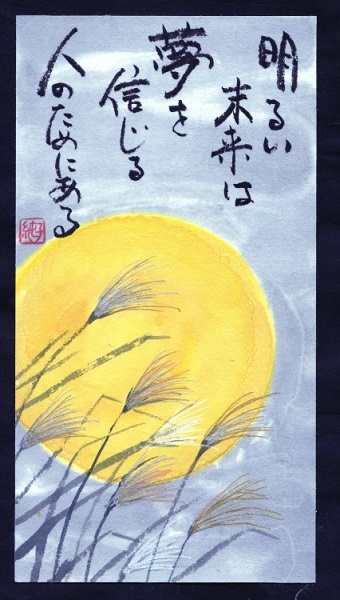 明るい
末来は
夢を
信じる
人のためにある